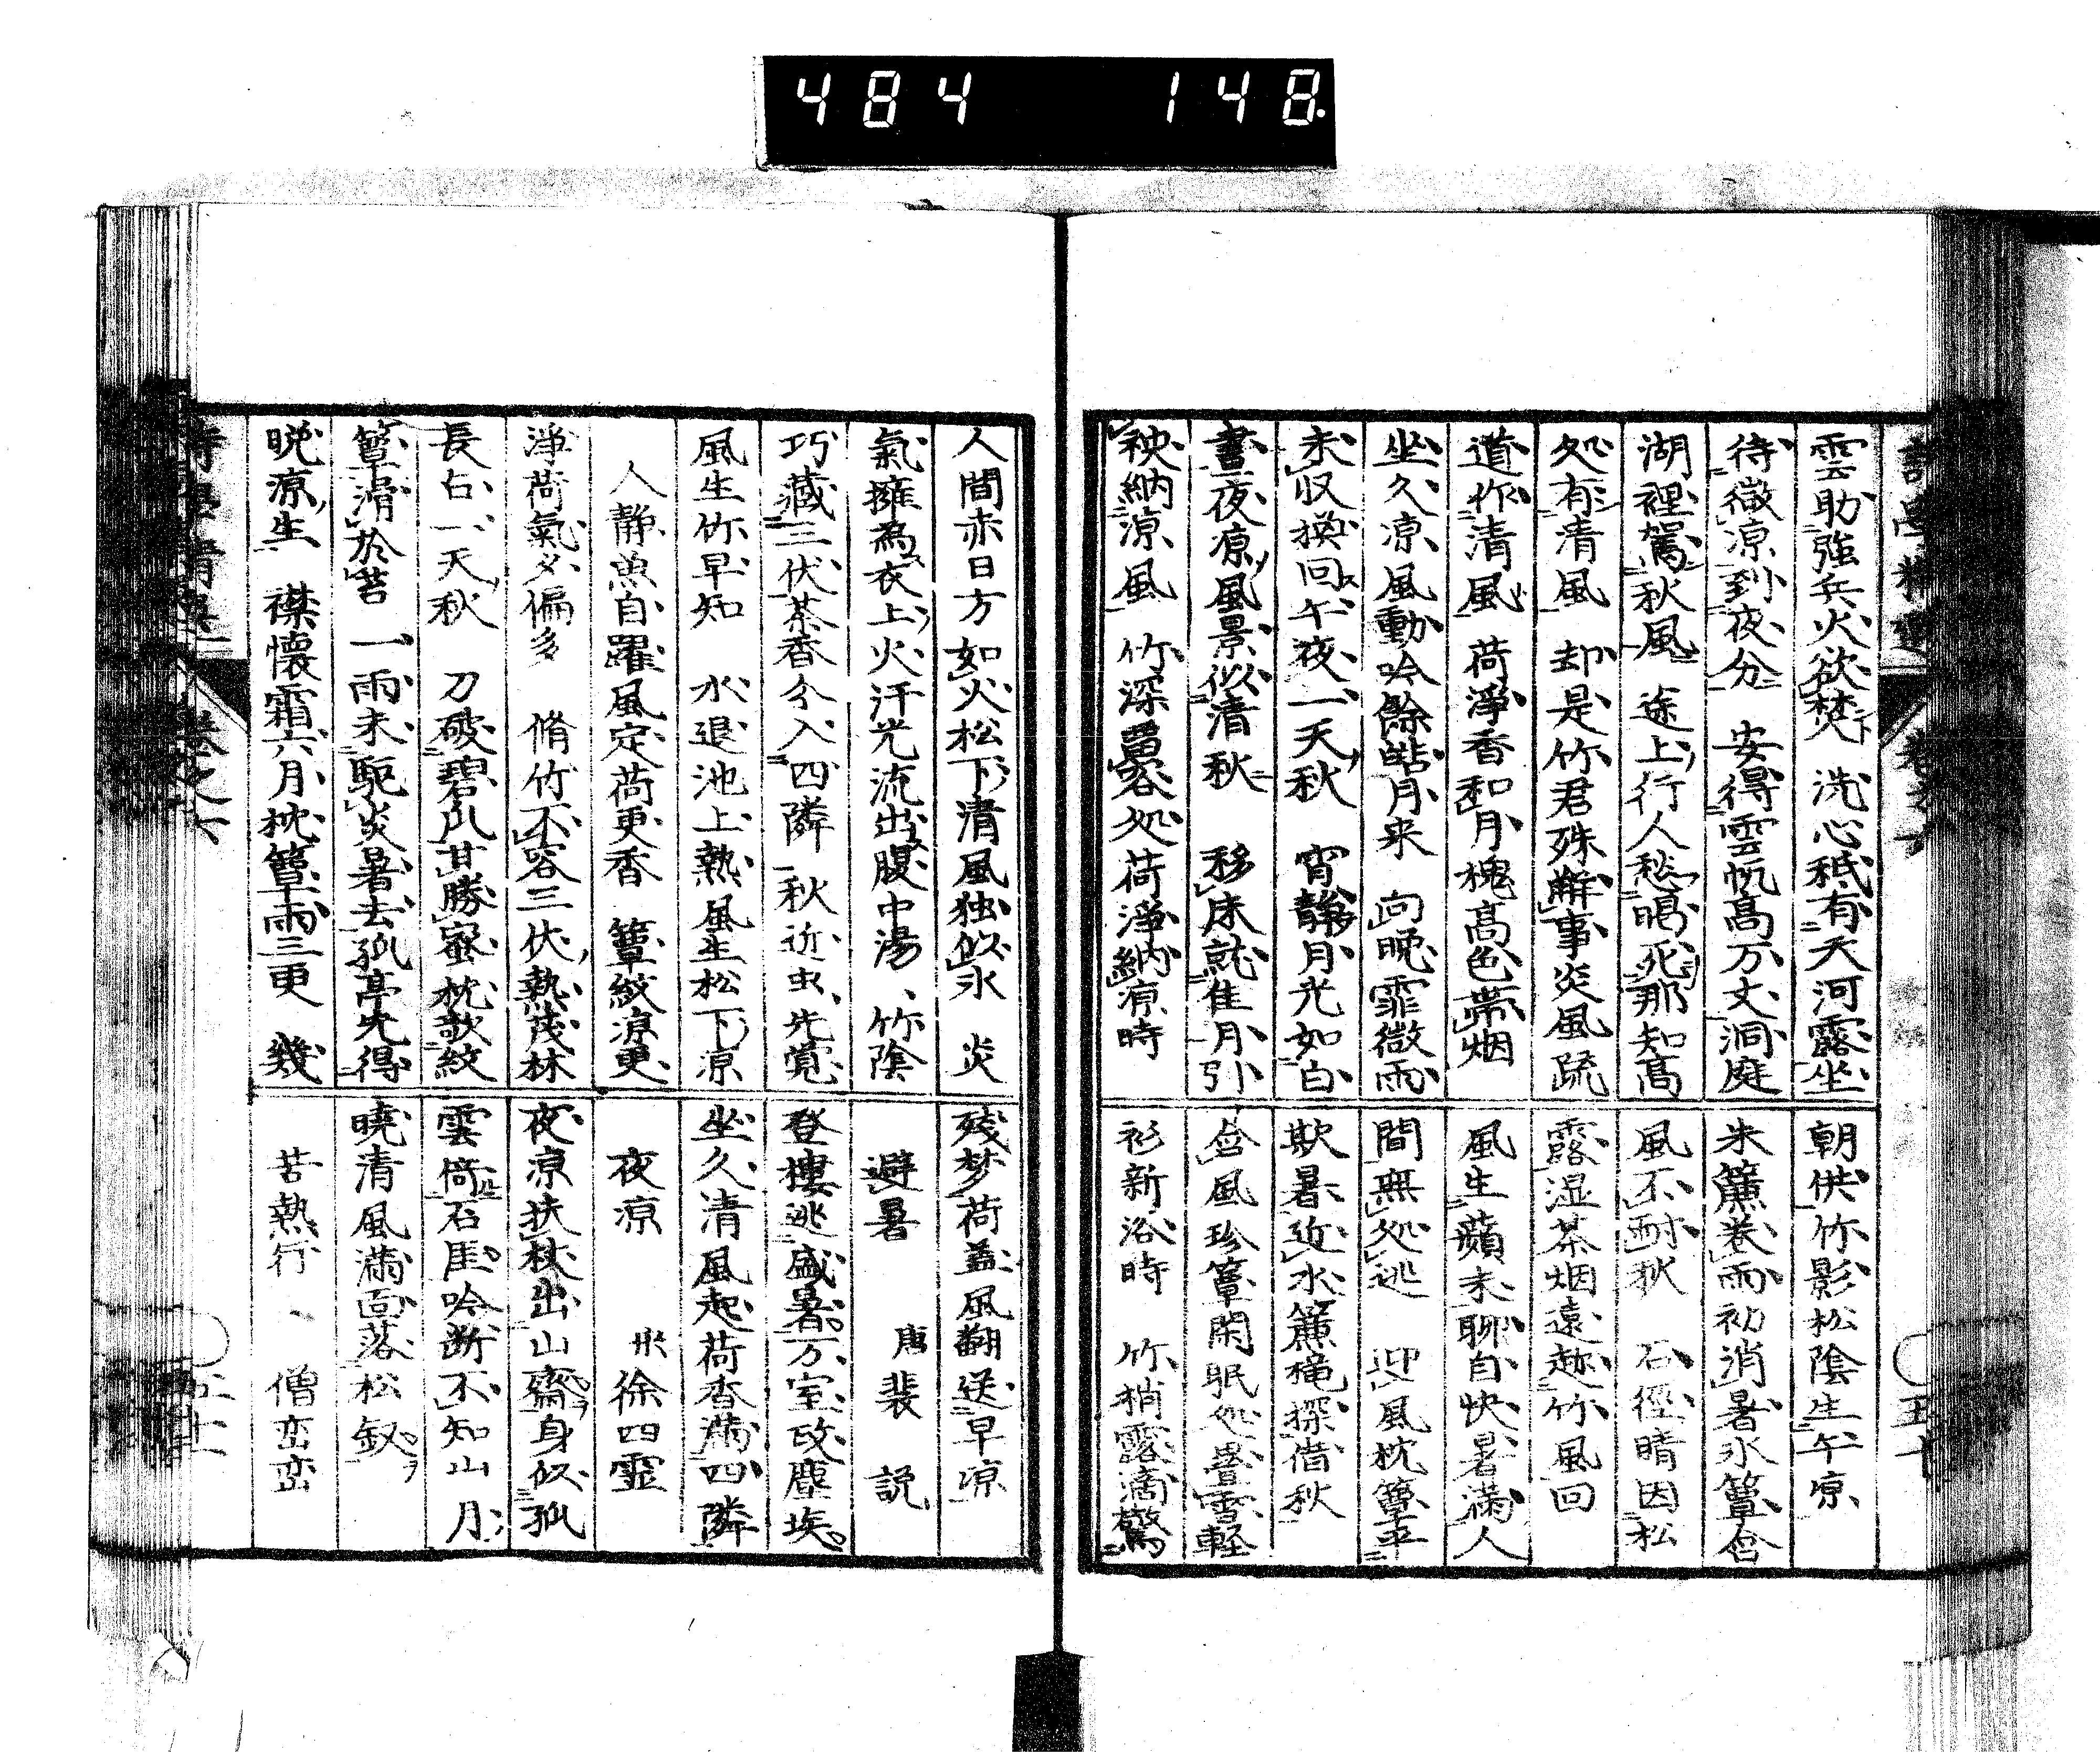 484 148
雲助強兵火欲焚 洗心秪有天河露坐
待微凉到夜分 安得雲帆高万丈洞庭
湖裡駕秋風 途上行人愁暍死那知高
処有清風 却是竹君殊解事炎風疏
道作清風 荷淨香和月槐高色帯烟
坐久凉風動吟餘皓月来 向晩霏微雨
未収換回午夜一天秋 宵静月光如白
晝夜凉風景似清秋 移床就隹月引
秧納凉風 竹深畱客処荷淨納凉時
朝供竹影松陰生午凉
米簾巻雨初消暑氷簟含
風不耐秋 石徑晴因松
露湿茶烟遠趁竹風回
風生蘋末聊自快暑满人
間無処逃 迎風枕簟平
欺暑近水簾櫳探借秋
含風珍簟閑眠処畳雪軽
衫新浴時 竹梢露滴驚
人間赤日方如火松下清風独似氷 炎
氣擁為衣上火汗光流出腹中湯 竹陰
巧藏三伏茶香分入四隣 秋近虫先覚
風生竹早知 水退池上熱風生松下凉
人静魚自躍風定荷更香 簟紋凉更
淨荷氣夕偏多 脩竹不容三伏熱茂林
長占一天秋 刀破碧瓜甘勝蜜枕欹紋
簟滑於苔 一雨未駈炎暑去孤亭先得
晩凉生 襟懐霜六月枕簟雨三更 幾
残梦荷盖風翻送早凉
避暑 唐 裴説
登樓逃盛暑万室政塵埃
坐久清風起荷香满四隣
夜凉 宋 徐四霊
夜凉扶杖出山齋身似孤
雲倚石厓吟断不知山月
曉清風满面落松釵
苦熱行 僧峦峦